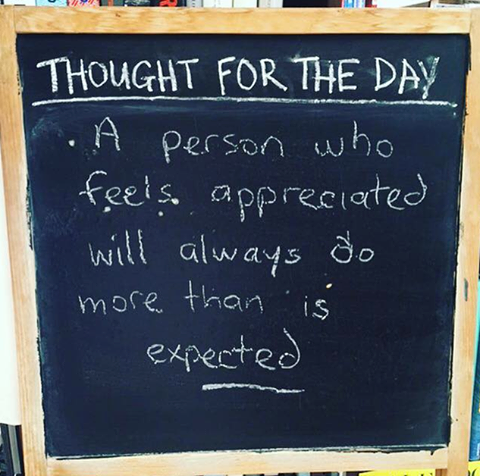 THOUGHT FOR THE DAY
A person who
feels appreciated
will always do
more than is
expected